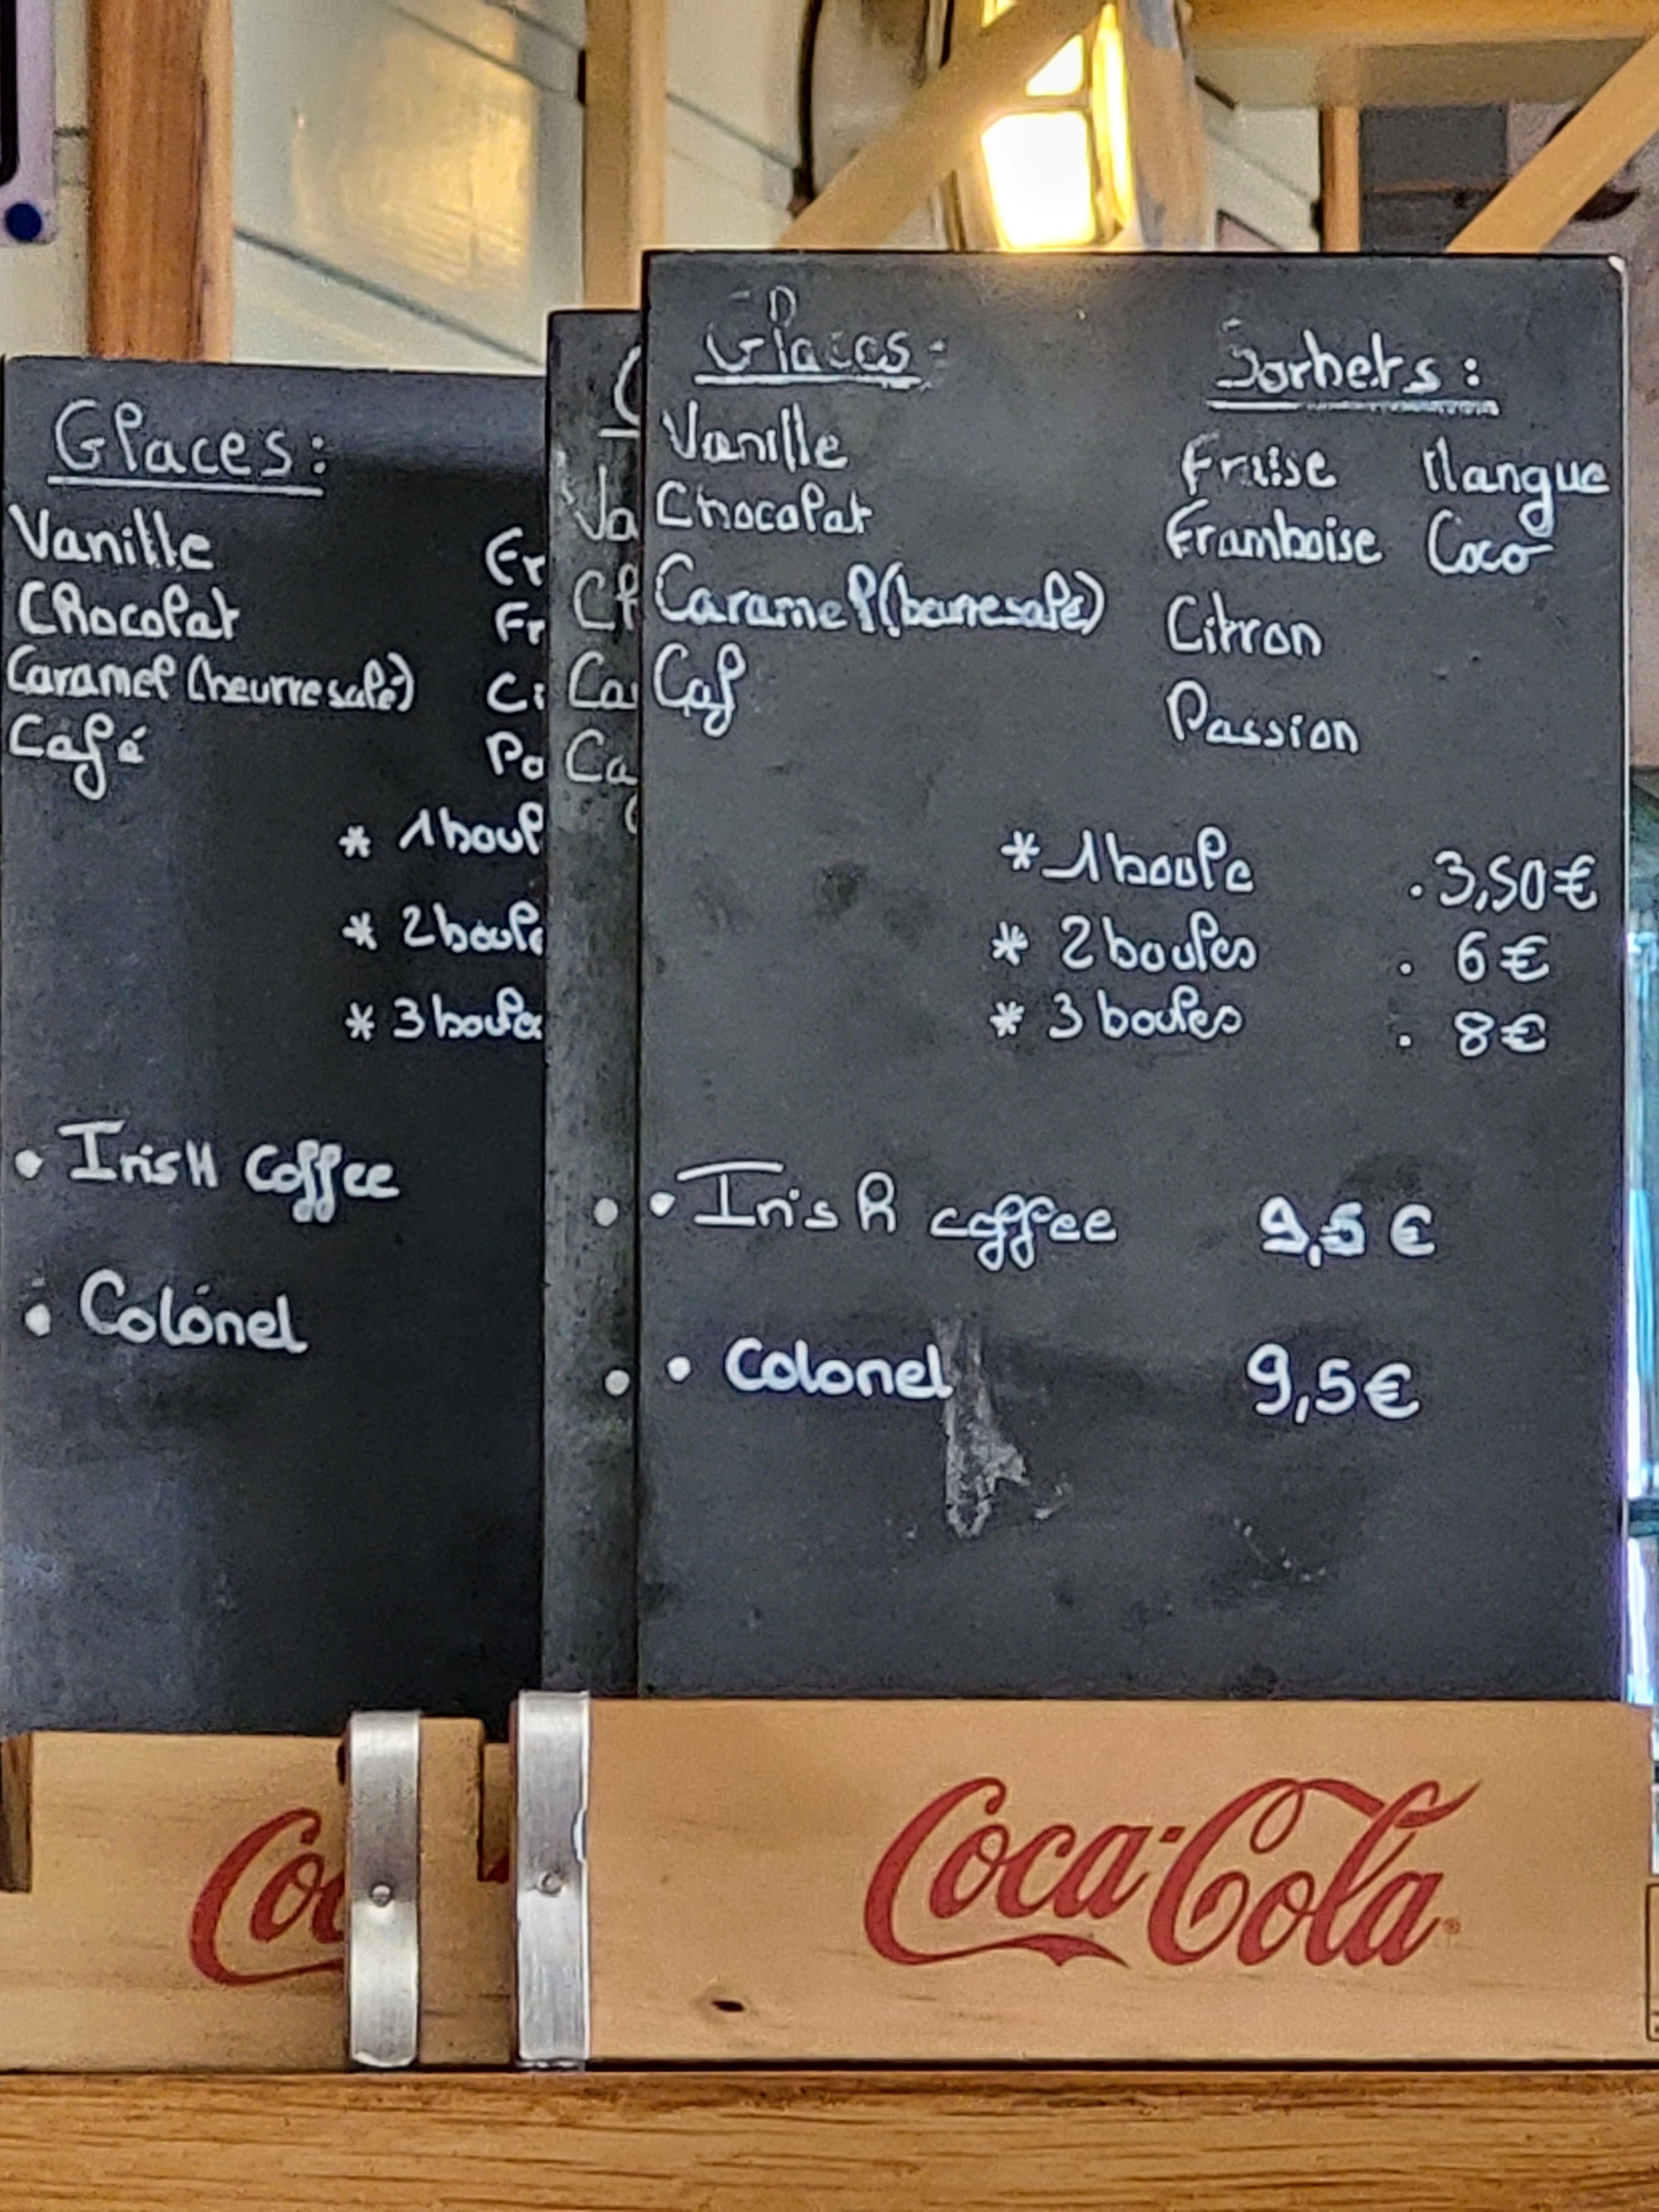 Glaces:
Vanille
Chocolat
Caramel (beurre salé)
Café
Fr
Fr
Ci
Pa
* 1 boul
* 2 boule
* 3 boules
• IrisH coffee
• Colonel
Va
Ch
Ca
Ca
Glaces:
Vanille
Chocolat
Caramel (beurre salé)
Caf
Sorbets:
Fraise Mangue
Framboise Coco
Citron
Passion
* 1 boule . 3,50€
* 2 boules . 6€
* 3 boules . 8€
• Irish coffee 9,5€
• Colonel 9,5€
Coc
Coca-Cola